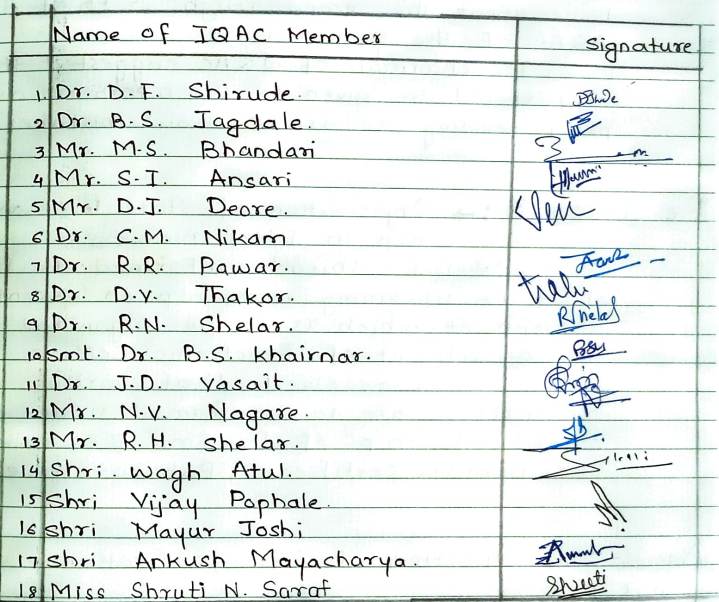 Name of IQAC Member Signature
1. Dr. D.F. Shirude.
2 Dr. B.S. Jagdale.
3 Mr. M.S. Bhandari
4 Mr. S.I. Ansari
5 Mr. D.J. Deore.
6 Dr. C.M. Nikam
7 Dr. R.R. Pawar.
8 Dr. D.V. Thakor.
9 Dr. R.N. Shelar. RShelar
10 Smt. Dr. B.S. Khairnar.
11 Dr. J.D. Vasait.
12 Mr. N.V. Nagare.
13 Mr. R.H. Shelar.
14 Shri. Wagh Atul.
15 Shri Vijay Pophale.
16 Shri Mayur Joshi
17 Shri Ankush Mayacharya.
18 Miss Shruti N. Saraf Shruti